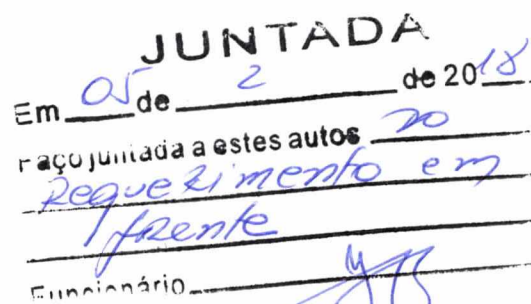 JUNTADA
Em 05 de 2 de 2018
Faço juntada a estes autos
Requerimento em
frente
Funcionário